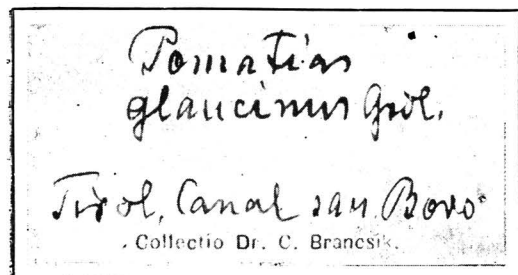 Pomatias
glaucinus Gröl.
Tirol, Canal san Bovo
Collectio Dr. C. Brancsik.